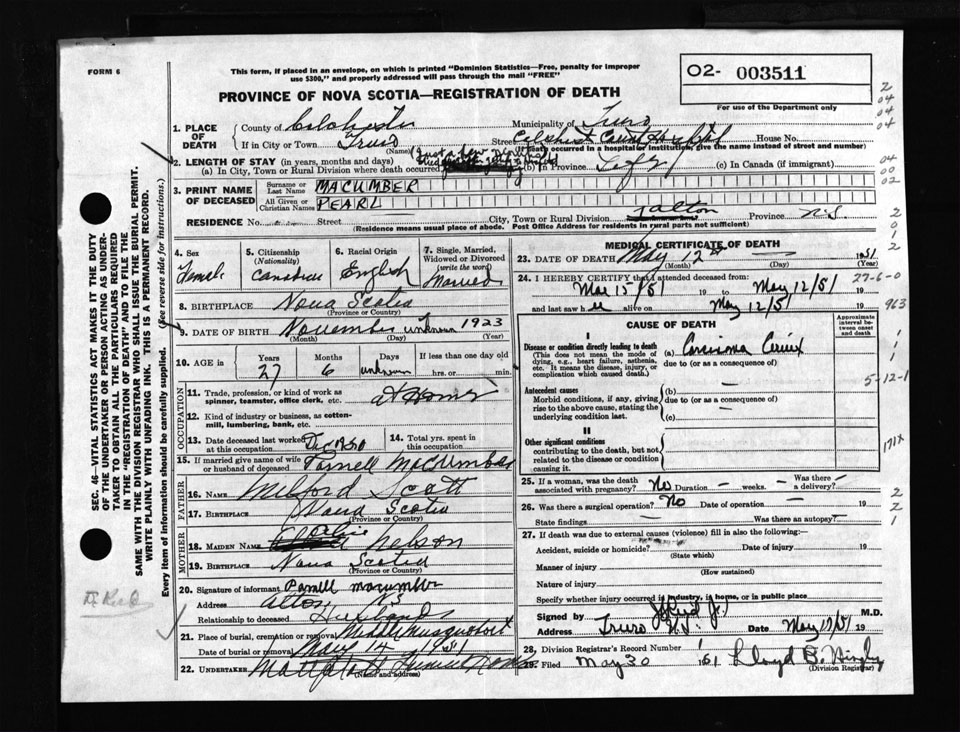 FORM 6
This form, if placed in an envelope, on which is printed "Dominion Statistics—Free, penalty for improper
use $300," and properly addressed will pass through the mail "FREE"
O2- 003511
For use of the Department only
PROVINCE OF NOVA SCOTIA—REGISTRATION OF DEATH
1. PLACE OF DEATH
County of Colchester Municipality of Truro
If in City or Town Truro Street Colchest Count Hospital House No.
(Name) (If death occurred in hospital or institution, give the name instead of street and number)
2. LENGTH OF STAY (in years, months and days)
(a) In City, Town or Rural Division where death occurred (b) In Province Life (c) In Canada (if immigrant)
3. PRINT NAME OF DECEASED
Surname or Last Name MACUMBER
All Given or Christian Names PEARL
RESIDENCE No. Street City, Town or Rural Division Alton Province N.S.
(Residence means usual place of abode. Post Office Address for residents in rural parts not sufficient)
4. Sex Female
5. Citizenship (Nationality) Canadian
6. Racial Origin English
7. Single, Married, Widowed or Divorced (write the word) Married
8. BIRTHPLACE Nova Scotia
(Province or Country)
9. DATE OF BIRTH November unknown 1923
(Month) (Day) (Year)
10. AGE in Years 27 Months 6 Days unknown If less than one day old hrs. or min.
OCCUPATION
11. Trade, profession, or kind of work as spinner, teamster, office clerk, etc. At Home
12. Kind of industry or business, as cotton-mill, lumbering, bank, etc.
13. Date deceased last worked at this occupation Dec 1950
14. Total yrs. spent in this occupation
15. If married give name of wife or husband of deceased Parnell Macumber
FATHER
16. NAME Milford Scott
17. BIRTHPLACE Nova Scotia
(Province or Country)
MOTHER
18. MAIDEN NAME Nelson
19. BIRTHPLACE Nova Scotia
(Province or Country)
20. Signature of informant Parnell Macumber
Address Alton N S
Relationship to deceased Husband
21. Place of burial, cremation or removal Middle Musquodoboit
Date of burial or removal May 14 1951
22. UNDERTAKER
(Name and address)
MEDICAL CERTIFICATE OF DEATH
23. DATE OF DEATH May 12 1951
(Month) (Day) (Year)
24. I HEREBY CERTIFY that I attended deceased from:
Mar 15/51 19 to May 12/51 19
and last saw h er alive on May 12/51 19
CAUSE OF DEATH
Approximate interval between onset and death
I
Disease or condition directly leading to death (a) Carcinoma Cervix
(This does not mean the mode of dying, e.g., heart failure, asthenia, etc. It means the disease, injury, or complication which caused death.)
due to (or as a consequence of)
Antecedent causes (b) —
Morbid conditions, if any, giving rise to the above cause, stating the underlying condition last.
due to (or as a consequence of)
(c) —
II
Other significant conditions
contributing to the death, but not related to the disease or condition causing it.
25. If a woman, was the death associated with pregnancy? No Duration — weeks. Was there a delivery? —
26. Was there a surgical operation? No Date of operation — 19
State findings — Was there an autopsy? —
27. If death was due to external causes (violence) fill in also the following:
Accident, suicide or homicide? Date of injury 19
(State which)
Manner of injury
(How sustained)
Nature of injury
Specify whether injury occurred in industry, in home, or in public place
Signed by M.D.
Address Truro N.S. Date May 17/51 19
28. Division Registrar's Record Number
29. Filed May 30 1951 Lloyd B.
(Division Registrar)
SEC. 46—VITAL STATISTICS ACT MAKES IT THE DUTY
OF THE UNDERTAKER OR PERSON ACTING AS UNDER-
TAKER TO OBTAIN ALL THE PARTICULARS REQUIRED
IN THE "REGISTRATION OF DEATH" AND TO FILE THE
SAME WITH THE DIVISION REGISTRAR WHO SHALL ISSUE THE BURIAL PERMIT.
WRITE PLAINLY WITH UNFADING INK. THIS IS A PERMANENT RECORD.
Every item of information should be carefully supplied. (See reverse side for instructions.)
2
04
04
04
04
00
02
2
01
2
27-6-0
963
1
1
1
5-12-1
171X
2
2
1